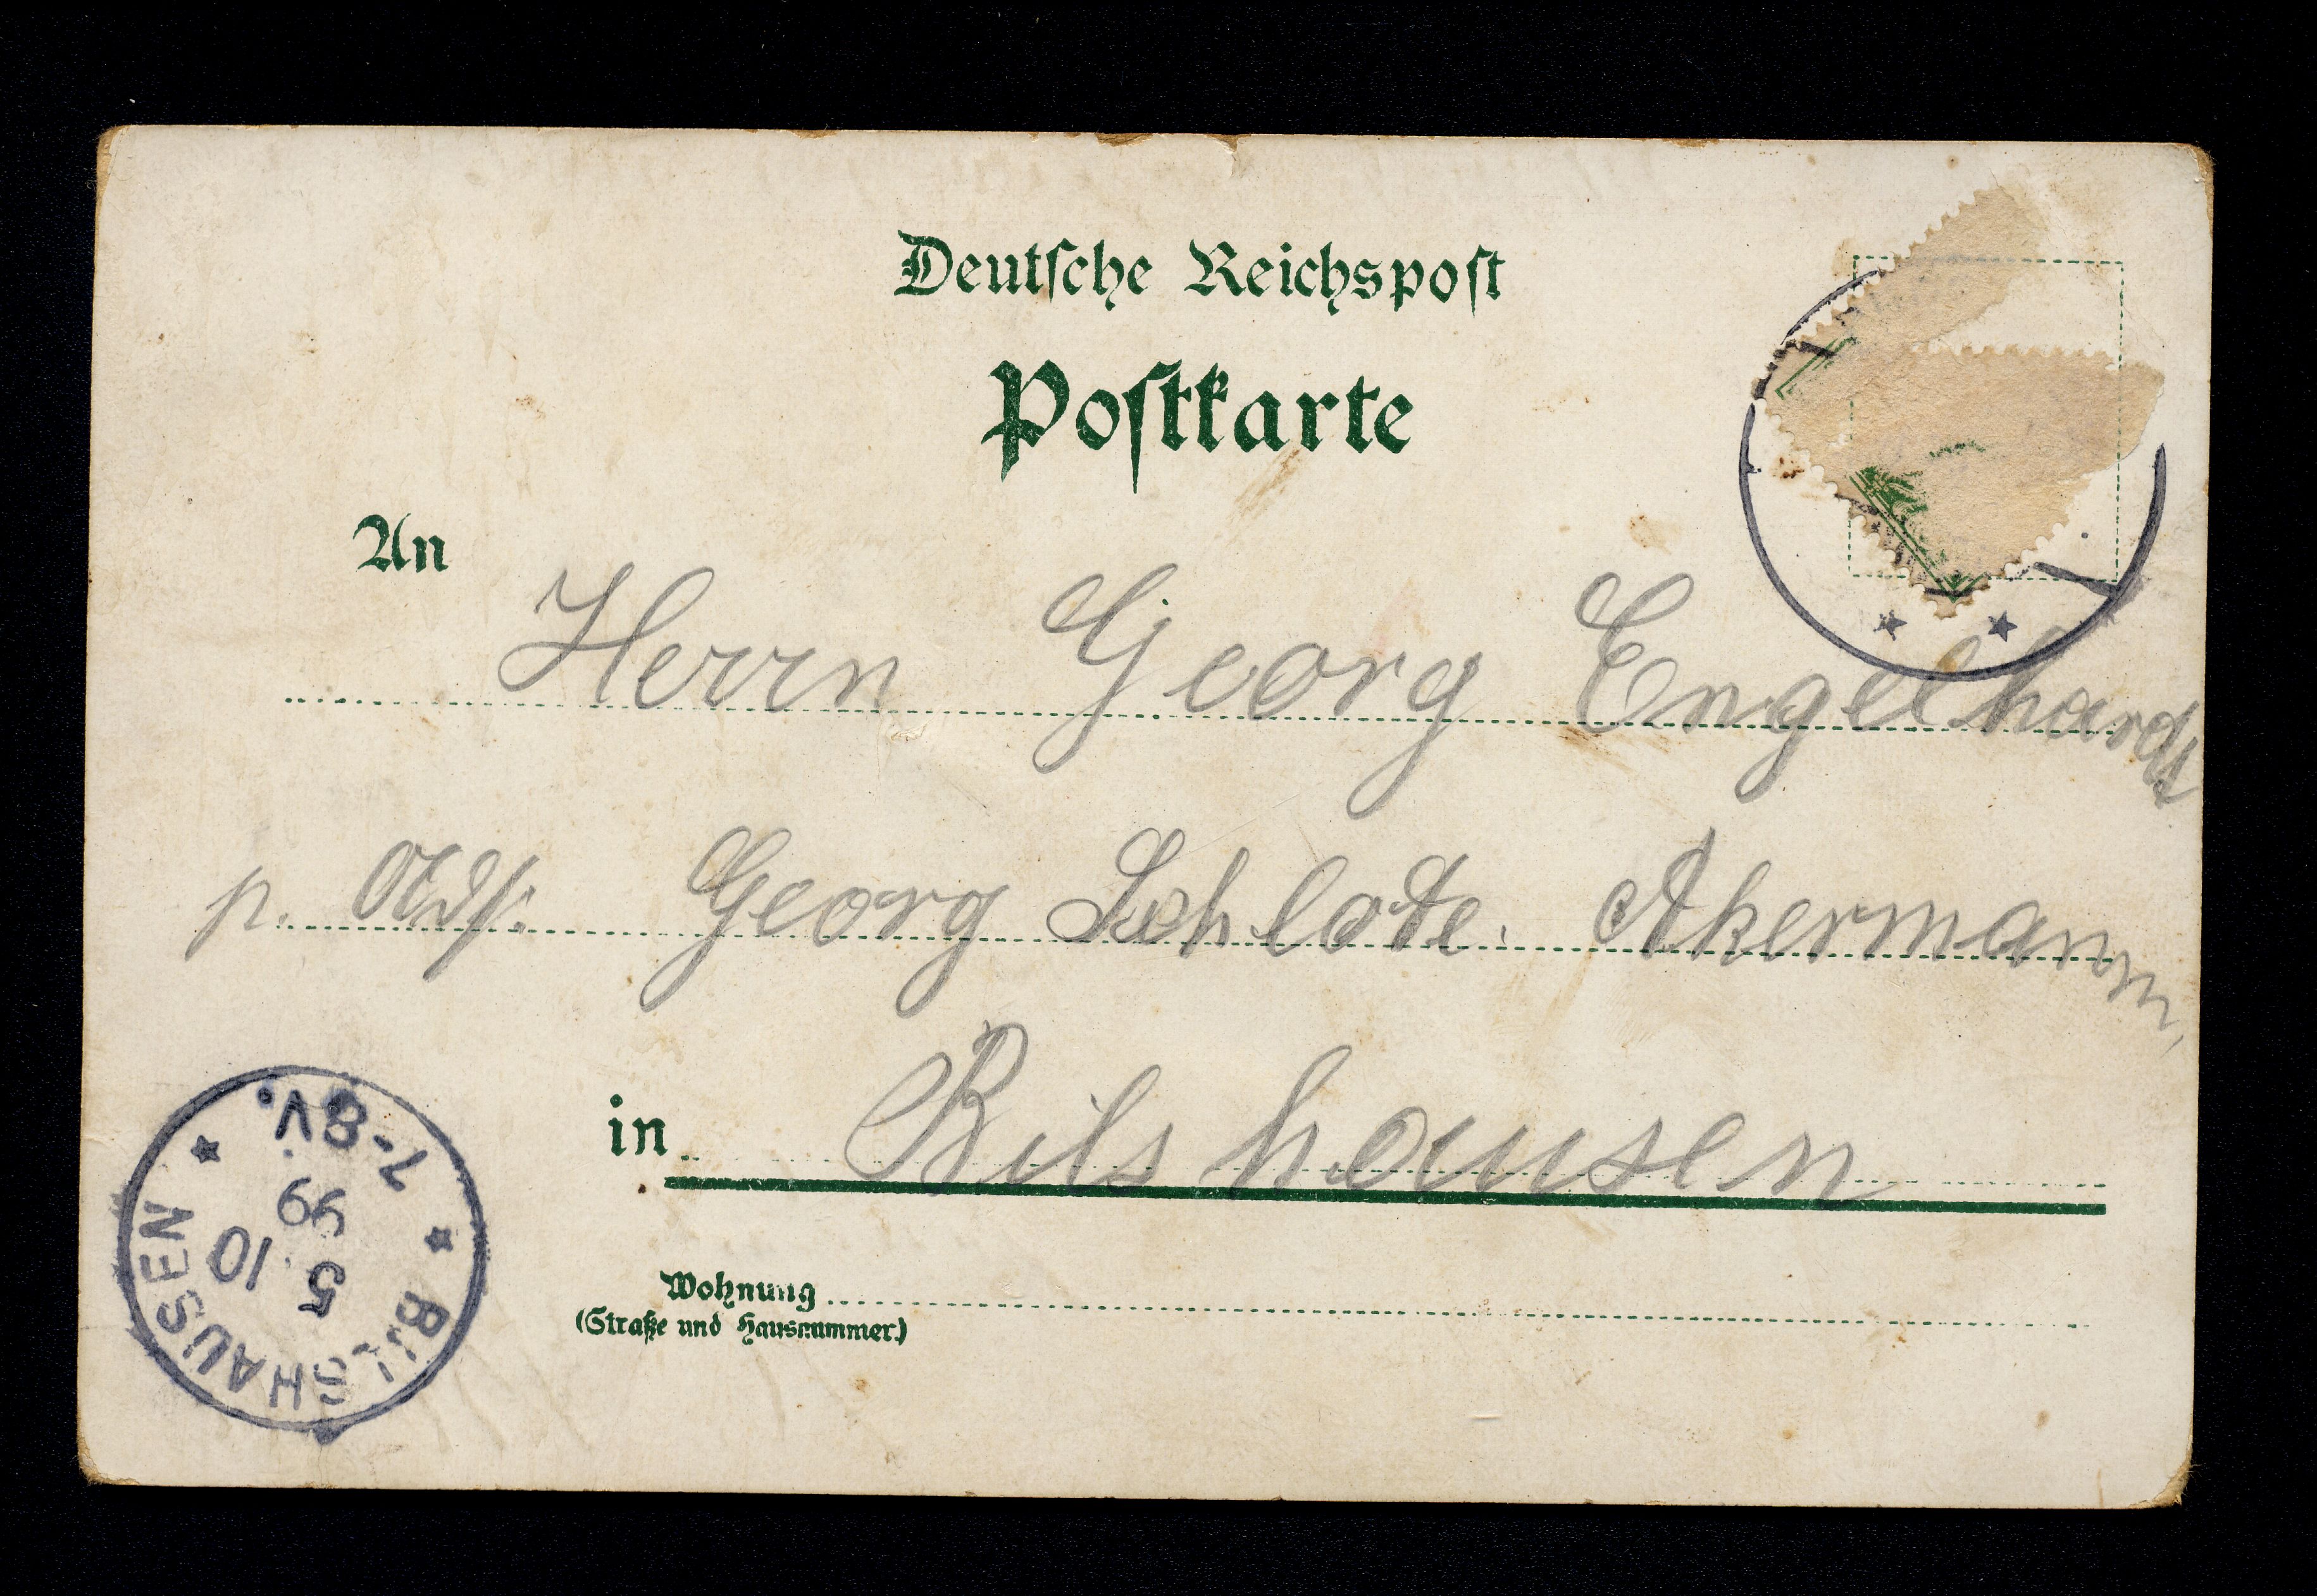 Deutsche Reichspost
Postkarte
An
Herrn Georg Engelhardt
p. Adr. Georg Schlote. Akermann,
in Bilshausen
Wohnung
(Straße und Hausnummer)
BILSHAUSEN
5 10 99
7-8V.